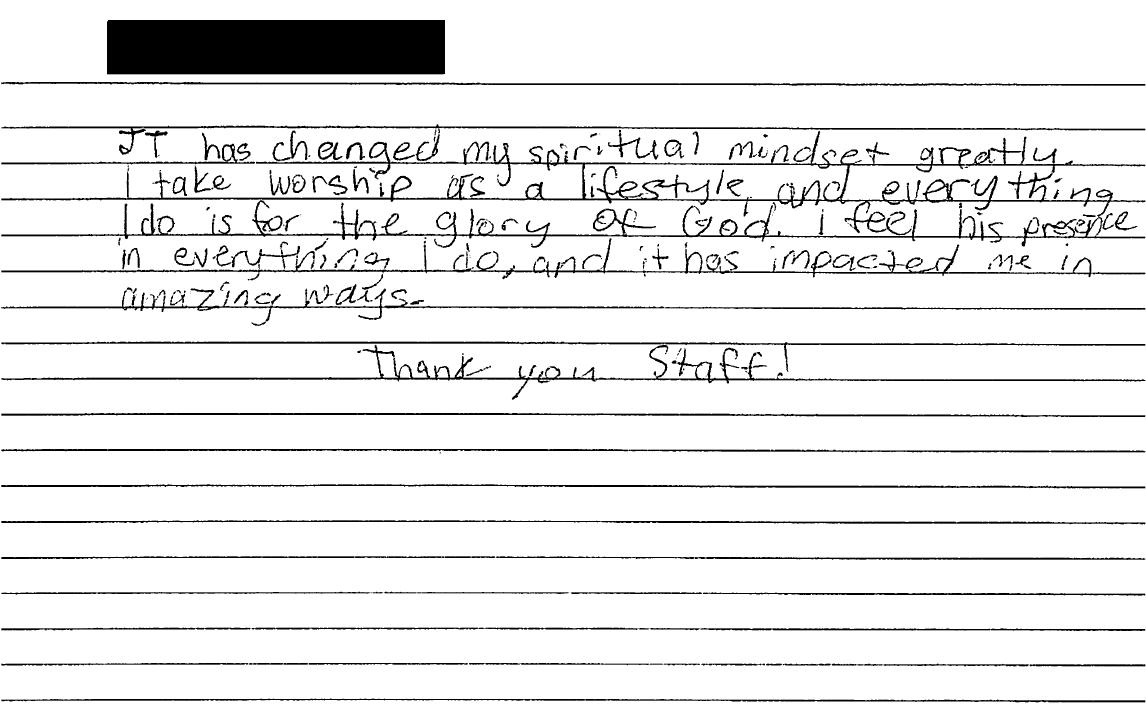 JT has changed my spiritual mindset greatly.
I take worship as a lifestyle, and everything
I do is for the glory of God. I feel his presence
in everything I do, and it has impacted me in
amazing ways.
Thank you Staff!